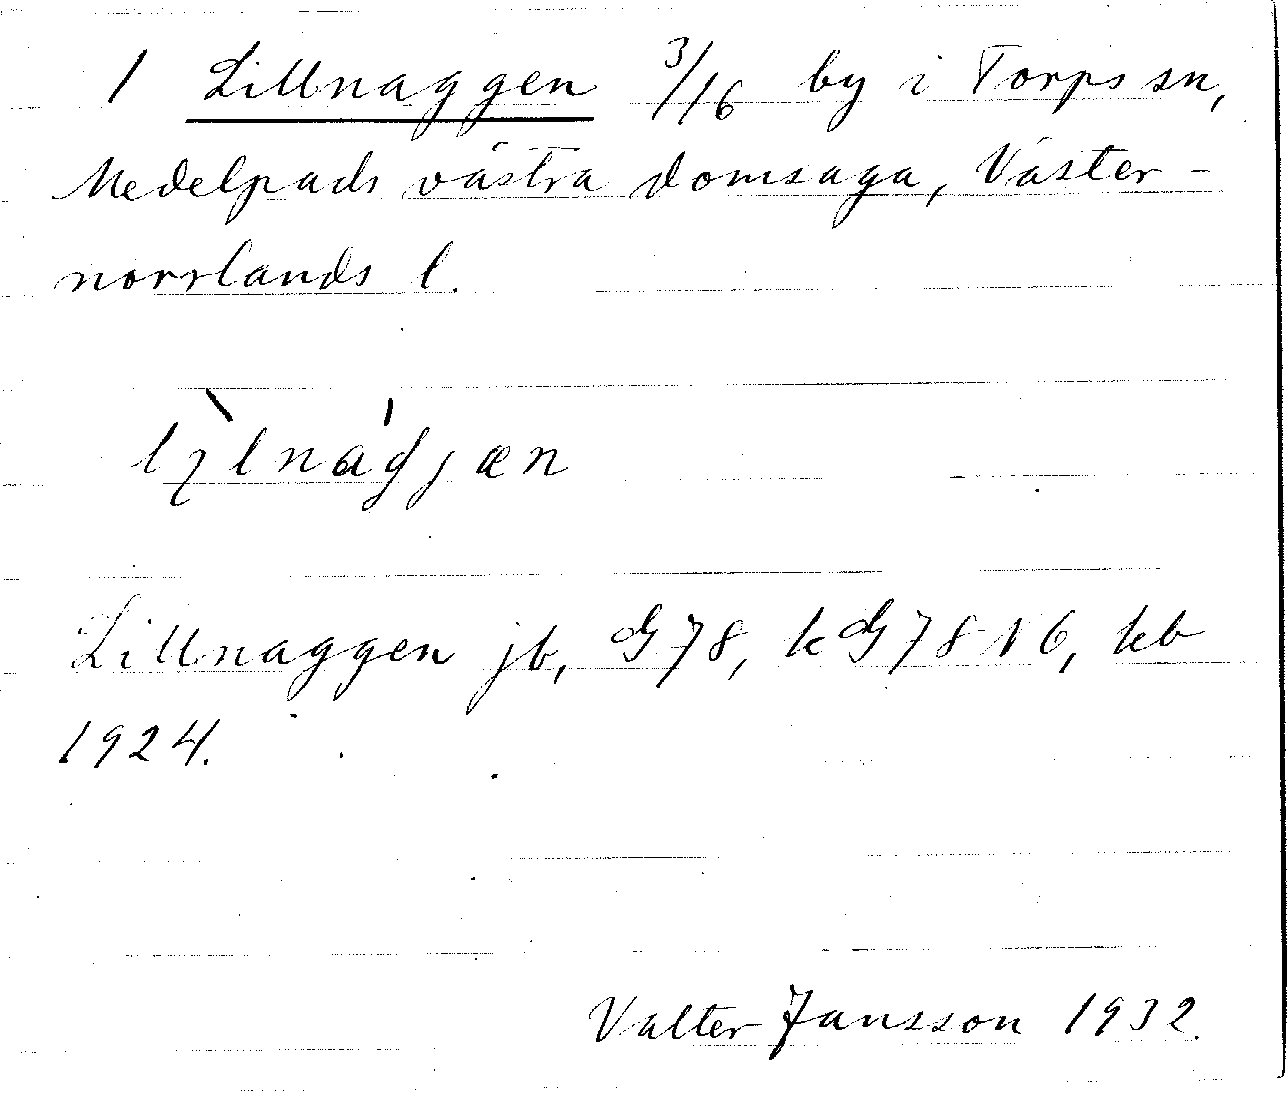 1 Lillnaggen 3/16 by i Torps sn,
Medelpads västra domsaga, Väster-
norrlands l.
Lillnaggen jb, G78, kG78 N6, kb
1924.
Valter Jansson 1932.